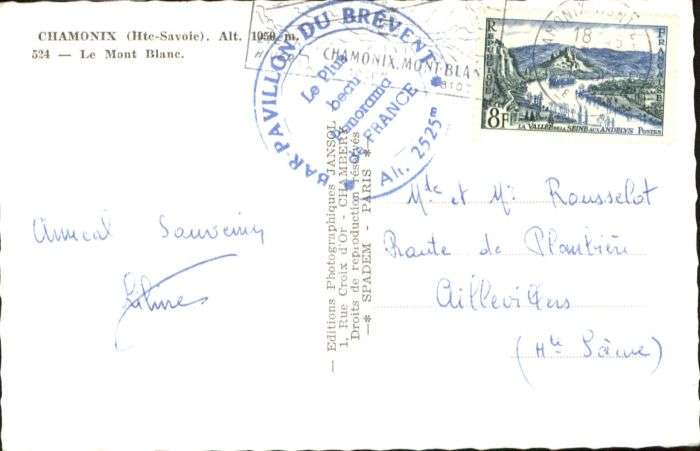 CHAMONIX (Hte-Savoie). Alt. 1050 m.
524 — Le Mont Blanc.
BAR-PAVILLON DU BRÉVENT
Le Plus
beau
Panorama
de FRANCE
Alt. 2525m
CHAMONIX MONT-BLANC
18
REPUBLIQUE
FRANÇAISE
8F
LA VALLÉE DE LA SEINE AUX ANDELYS POSTES
— Editions Photographiques JANSOL
1, Rue Croix d'Or - CHAMBERY
Droits de reproduction réservés
—* SPADEM - PARIS *—
Amical Souvenir
Mde et Mr Rousselot
Route de Plombière
Aillevillers
(Hte Saône)